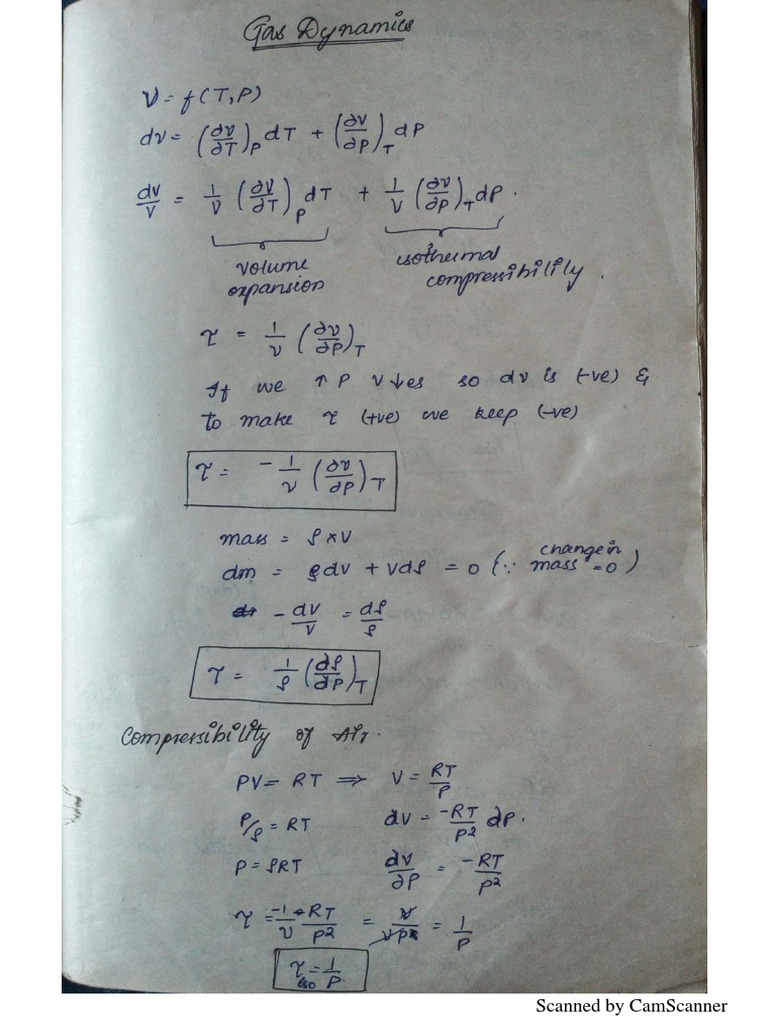 Gas Dynamics
V = f(T,P)
dv = (∂v/∂T)_P dT + (∂v/∂P)_T dP
dv/V = 1/V (∂V/∂T)_P dT + 1/V (∂v/∂P)_T dP.
volume expansion
isothermal compressibility.
τ = 1/v (∂v/∂P)_T
If we ↑ P V ↓es so dv is (-ve) &
to make τ (+ve) we keep (-ve)
τ = -1/v (∂v/∂P)_T
mass = ρ×V
dm = ρdv + vdρ = 0 (∵ change in mass = 0)
-dv/V = dρ/ρ
τ = 1/ρ (∂ρ/∂P)_T
Compressibility of Air.
PV = RT ⟹ V = RT/P
P/ρ = RT dv = -RT/P² dP.
P = ρRT dv/∂P = -RT/P²
τ = -1/v × -RT/P² = V/VP = 1/P
τ_iso = 1/P.
Scanned by CamScanner